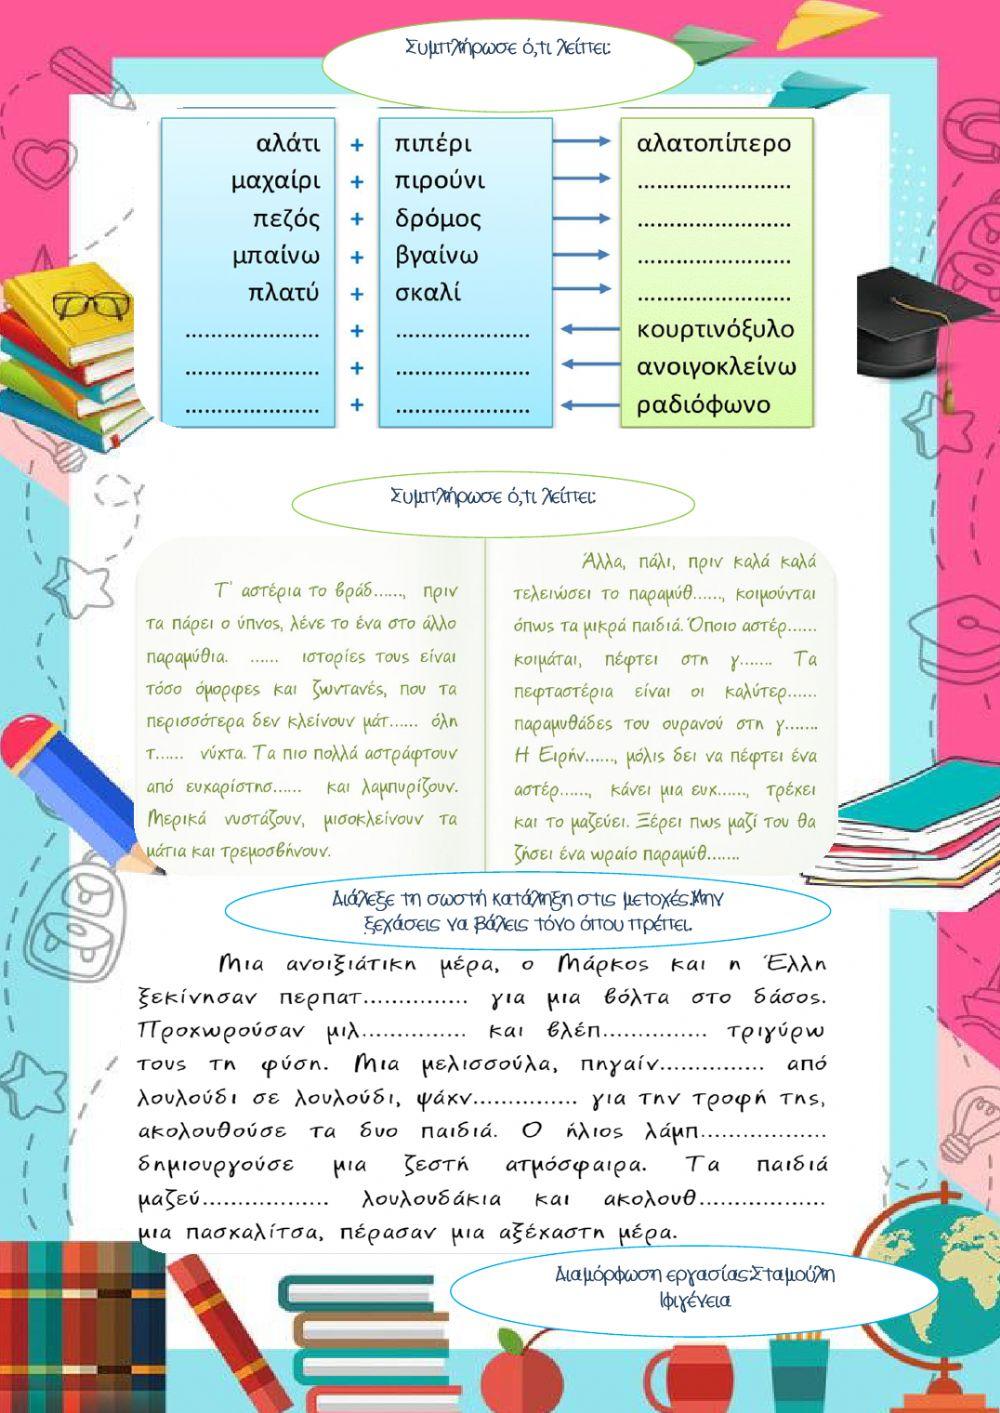 Συμπλήρωσε ό,τι λείπει:
αλάτι + πιπέρι αλατοπίπερο
μαχαίρι + πιρούνι ........................
πεζός + δρόμος ........................
μπαίνω + βγαίνω ........................
πλατύ + σκαλί ........................
..................... + ..................... κουρτινόξυλο
..................... + ..................... ανοιγοκλείνω
..................... + ..................... ραδιόφωνο
Συμπλήρωσε ό,τι λείπει:
Τ' αστέρια το βράδ......, πριν
τα πάρει ο ύπνος, λένε το ένα στο άλλο
παραμύθια. ...... ιστορίες τους είναι
τόσο όμορφες και ζωντανές, που τα
περισσότερα δεν κλείνουν μάτ...... όλη
τ...... νύχτα. Τα πιο πολλά αστράφτουν
από ευχαρίστησ...... και λαμπυρίζουν.
Μερικά νυστάζουν, μισοκλείνουν τα
μάτια και τρεμοσβήνουν.
Άλλα, πάλι, πριν καλά καλά
τελειώσει το παραμύθ......, κοιμούνται
όπως τα μικρά παιδιά. Όποιο αστέρ......
κοιμάται, πέφτει στη γ....... Τα
πεφταστέρια είναι οι καλύτερ......
παραμυθάδες του ουρανού στη γ.......
Η Ειρήν......, μόλις δει να πέφτει ένα
αστέρ......, κάνει μια ευχ......, τρέχει
και το μαζεύει. Ξέρει πως μαζί του θα
ζήσει ένα ωραίο παραμύθ.......
Διάλεξε τη σωστή κατάληξη στις μετοχές.Μην
ξεχάσεις να βάλεις τόνο όπου πρέπει.
Μια ανοιξιάτικη μέρα, ο Μάρκος και η Έλλη
ξεκίνησαν περπατ............... για μια βόλτα στο δάσος.
Προχωρούσαν μιλ............... και βλέπ............... τριγύρω
τους τη φύση. Μια μελισσούλα, πηγαίν............... από
λουλούδι σε λουλούδι, ψάχν............... για την τροφή της,
ακολουθούσε τα δυο παιδιά. Ο ήλιος λάμπ..................
δημιουργούσε μια ζεστή ατμόσφαιρα. Τα παιδιά
μαζεύ.................. λουλουδάκια και ακολουθ..................
μια πασχαλίτσα, πέρασαν μια αξέχαστη μέρα.
Διαμόρφωση εργασίας:Σταμούλη
Ιφιγένεια